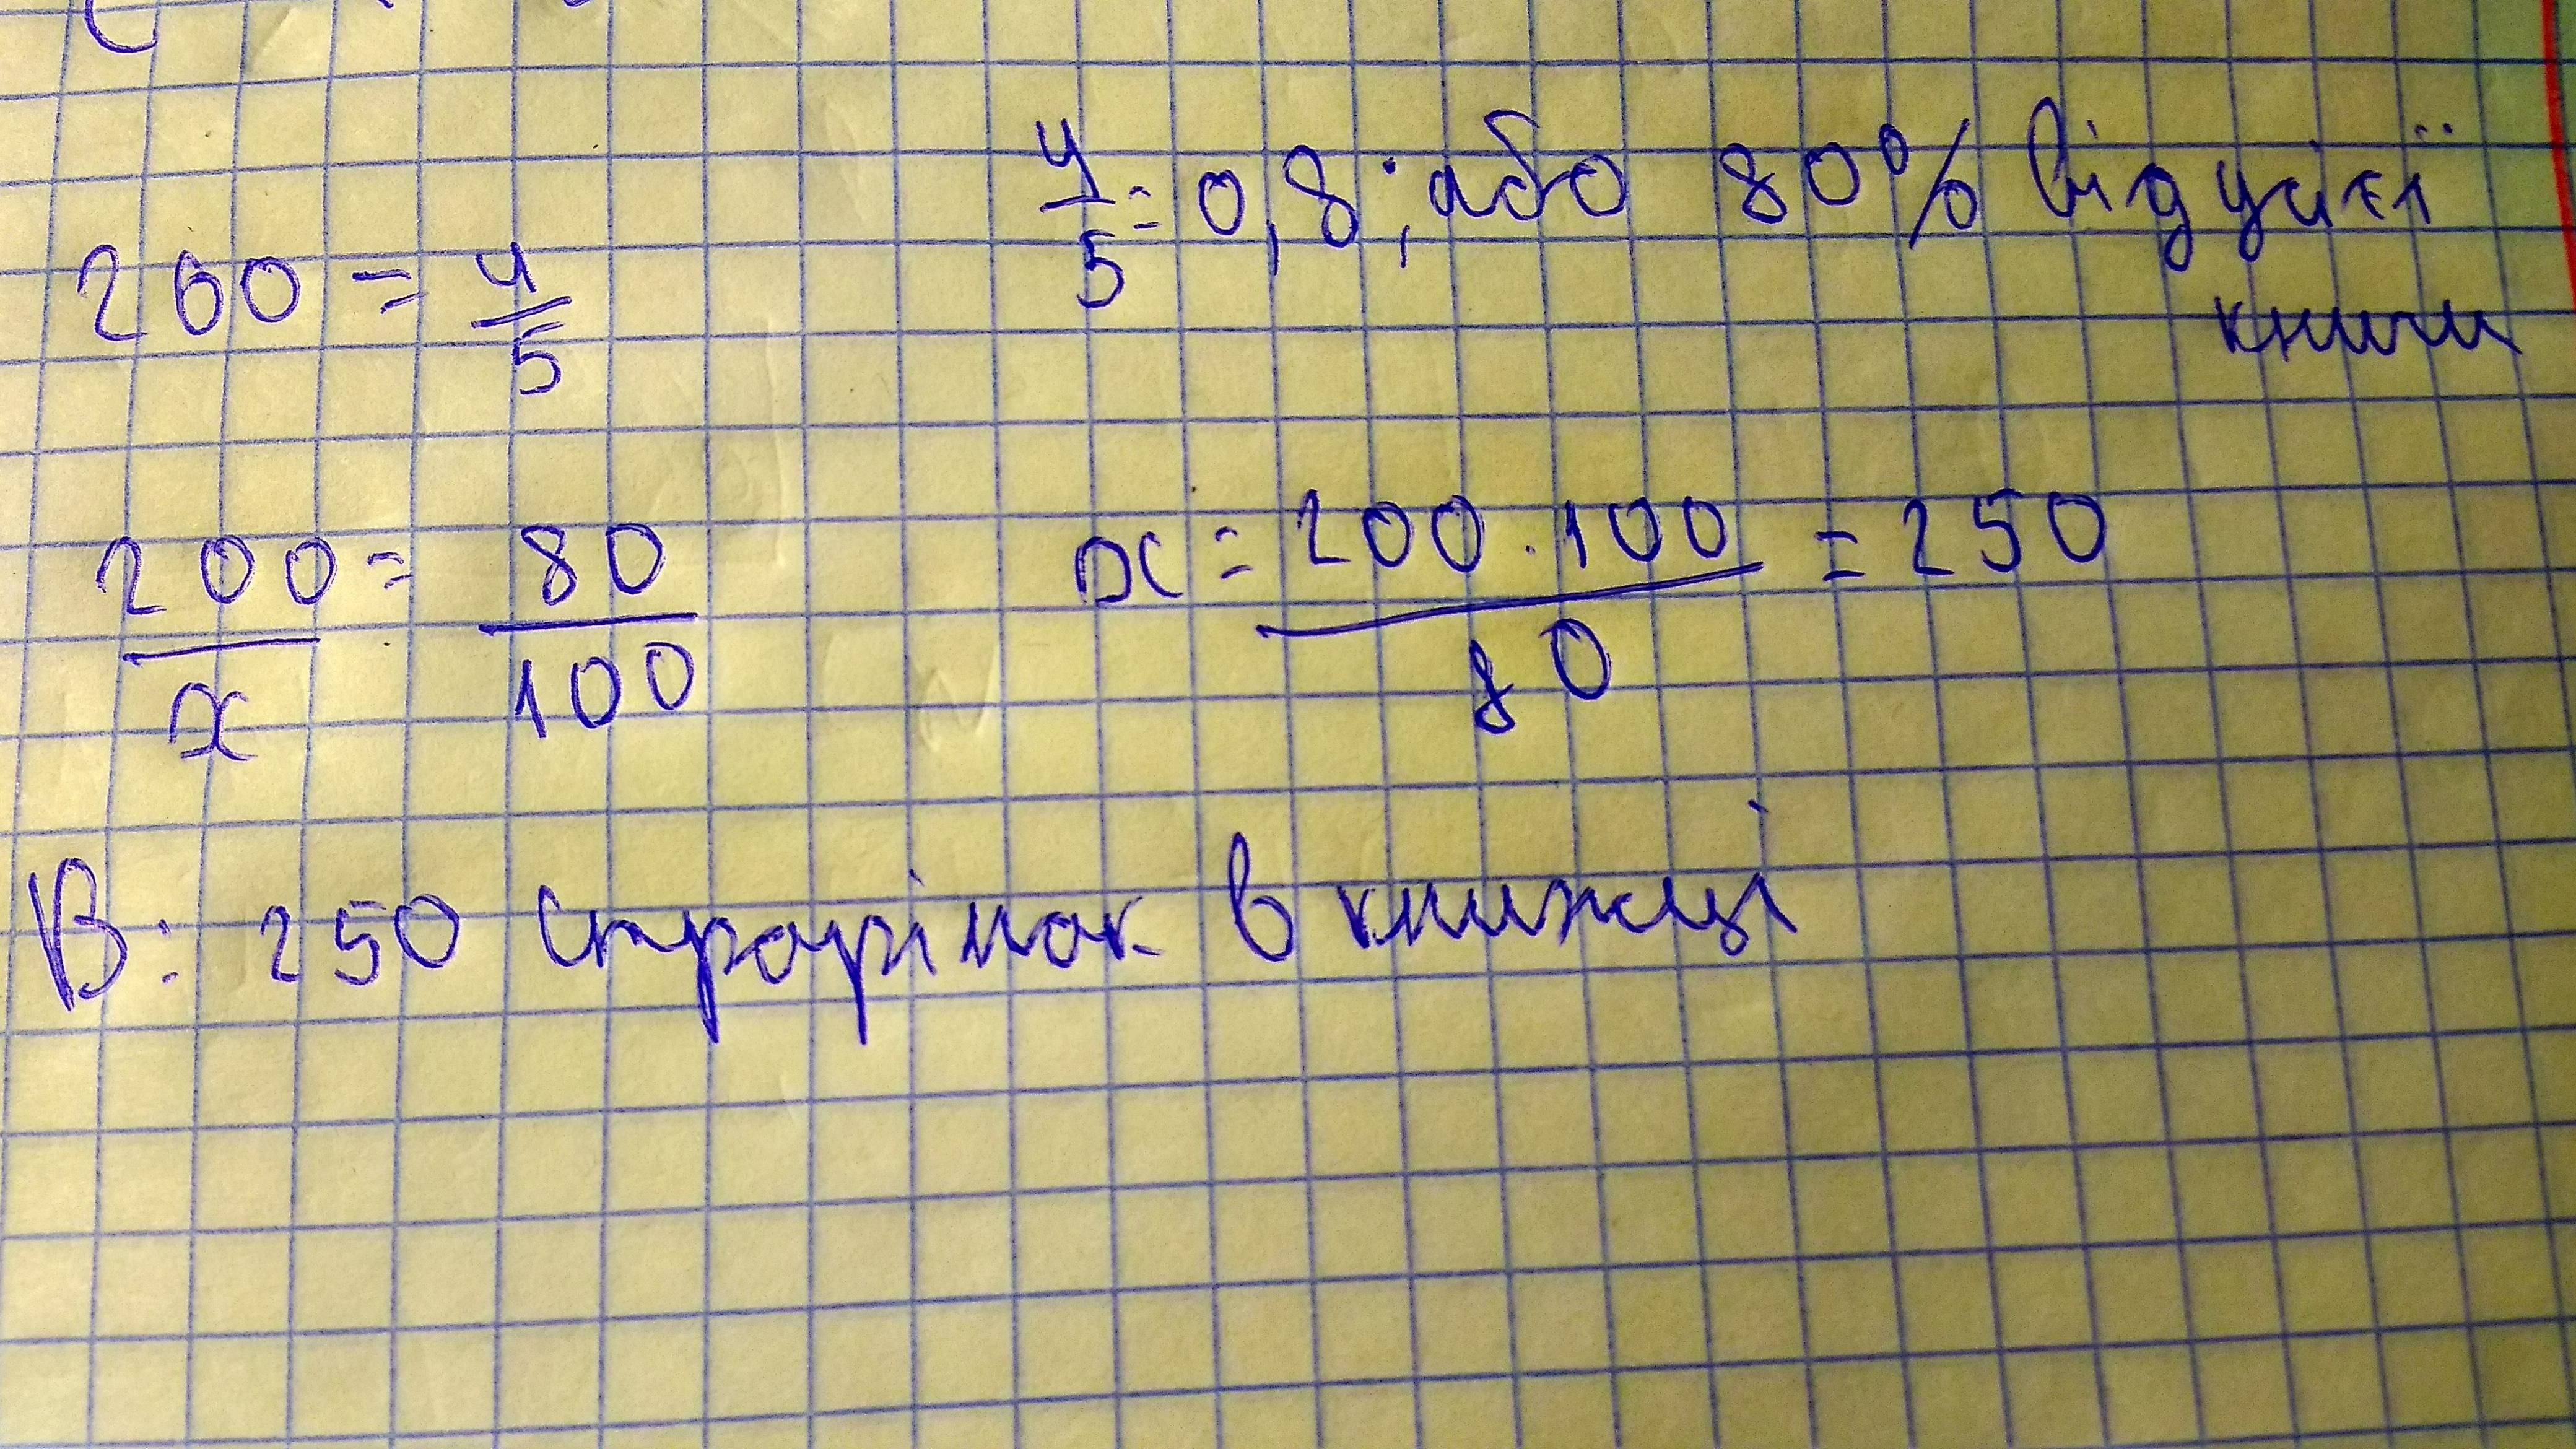 4/5 = 0,8; або 80% від усієї
книги
200 = 4/5
200/x = 80/100
x = 200 · 100 / 80 = 250
В: 250 сторінок в книжці